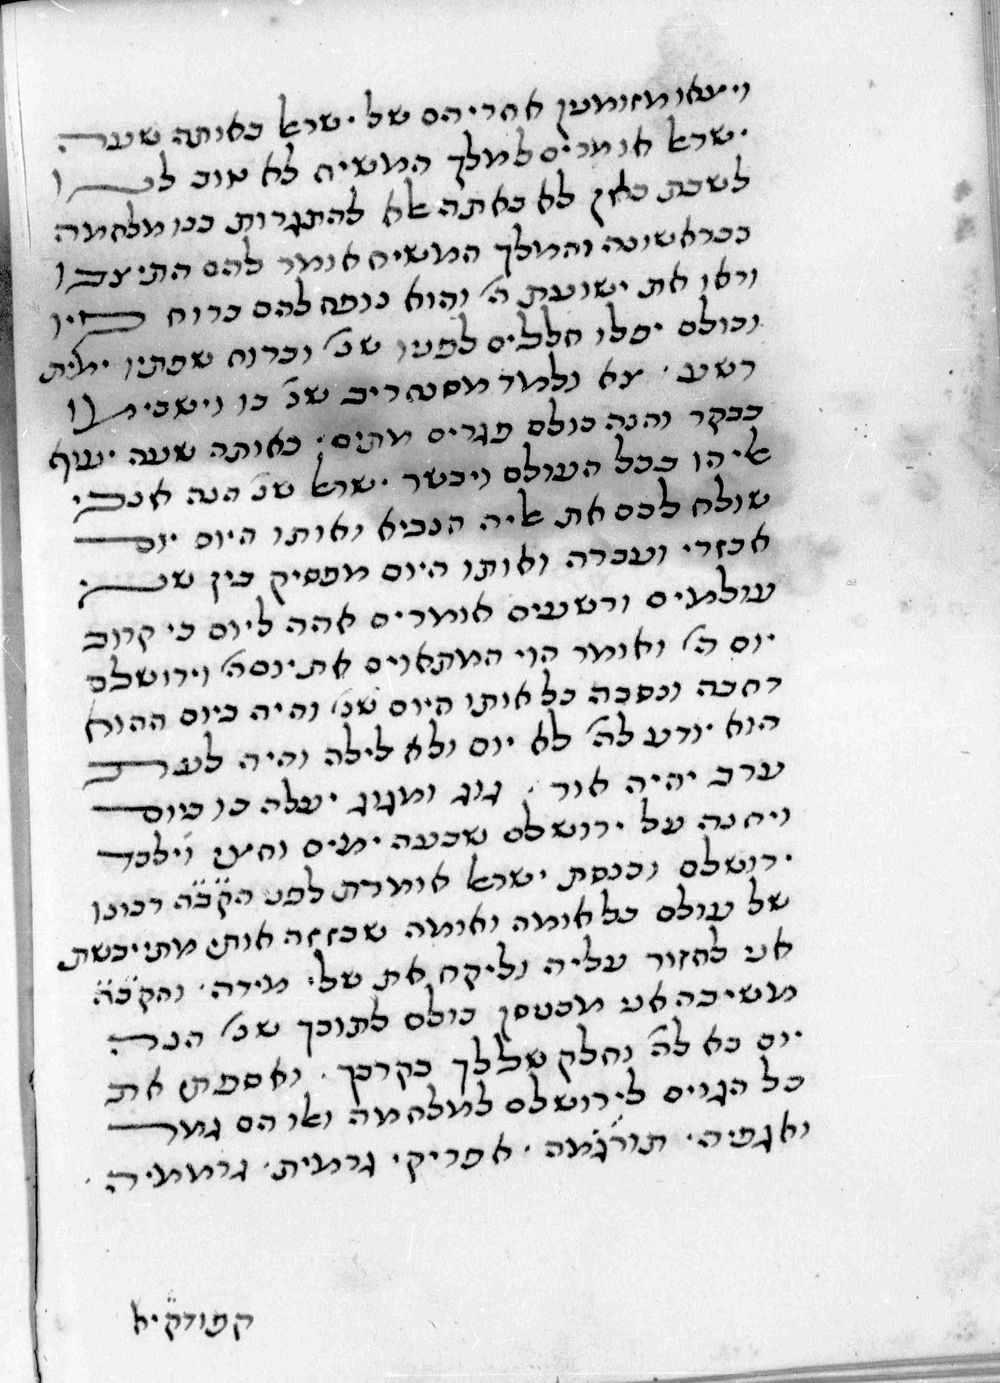 ויצאו מזומנין אחריהם של ישראל באותה שעה
ישראל אומרים למלך המשיח לא טוב לנו
לשבת כאן לא באתה אלא להתגרות בנו מלחמה
כבראשונה והמלך המשיח אומר להם התיצבו
וראו את ישועת ה' והוא נופח להם ברוח פיו
וכולם יפלו חללים לפניו שנ' וברוח שפתיו ימית
רשע . צא ולמוד מסנחריב שנ' בו וישכימו
בבקר והנה כולם פגרים מתים . באותה שעה יעוף
אליהו בכל העולם ויבשר ישראל שנ' הנה אנכי
שולח לכם את אליה הנביא ואותו היום יום
אכזרי ועברה ואותו היום מפסיק בין שני
עולמים ורשעים אומרים אהה ליום כי קרוב
יום ה' ואומר הוי המתאוים את יום ה' וירושלם
רחבה ונסבה כל אותו היום שנ' והיה ביום ההוא
הוא יודע לה' לא יום ולא לילה והיה לעת
ערב יהיה אור . גוג ומגוג יעלה בו ביום
ויחנה על ירושלם שבעה ימים וחצי וילכד
ירושלם וכנסת ישראל אומרת לפני הק'ב'ה רבונו
של עולם כל אומה ואומה שבזזה אותי מתייבשת
אני לחזור עליה וליקח את שלי מידה . והק'ב'ה
משיבה אני מכניסן כולם לתוכך שנ' הנה
יום בא לה' וחלק שללך בקרבך . ואספתי את
כל הגוים לירושלם למלחמה ואו הם גמר
ואגפיה . תורגמה . אפריקי . גרמית . גרממיה .
קפודקיא